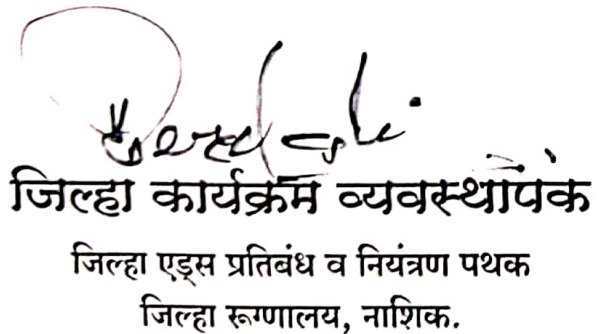 जिल्हा कार्यक्रम व्यवस्थापक
जिल्हा एड्स प्रतिबंध व नियंत्रण पथक
जिल्हा रूग्णालय, नाशिक.